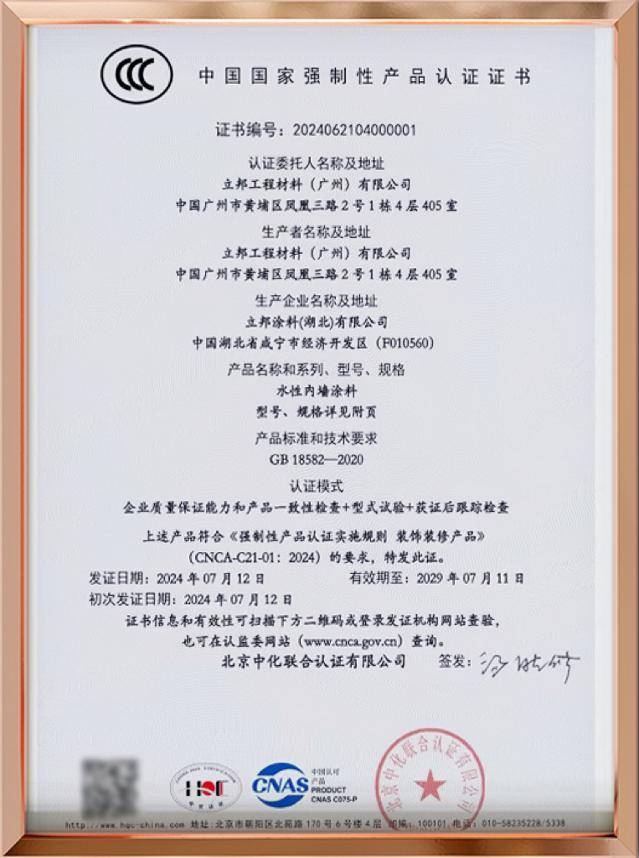 CCC 中国国家强制性产品认证证书
证书编号：2024062104000001
认证委托人名称及地址
立邦工程材料（广州）有限公司
中国广州市黄埔区凤凰三路2号1栋4层405室
生产者名称及地址
立邦工程材料（广州）有限公司
中国广州市黄埔区凤凰三路2号1栋4层405室
生产企业名称及地址
立邦涂料(湖北)有限公司
中国湖北省咸宁市经济开发区（F010560）
产品名称和系列、型号、规格
水性内墙涂料
型号、规格详见附页
产品标准和技术要求
GB 18582—2020
认证模式
企业质量保证能力和产品一致性检查+型式试验+获证后跟踪检查
上述产品符合《强制性产品认证实施规则 装饰装修产品》
（CNCA-C21-01：2024）的要求，特发此证。
发证日期：2024年07月12日 有效期至：2029年07月11日
初次发证日期：2024年07月12日
证书信息和有效性可扫描下方二维码或登录发证机构网站查验，
也可在认监委网站（www.cnca.gov.cn）查询。
北京中化联合认证有限公司 签发：
北京中化联合认证有限公司
HQC
CNAS
中国认可
产品
PRODUCT
CNAS C075-P
http://www.hqc-china.com 地址:北京市朝阳区北苑路170号6号楼4层 邮编：100101 电话：010-58235228/5338